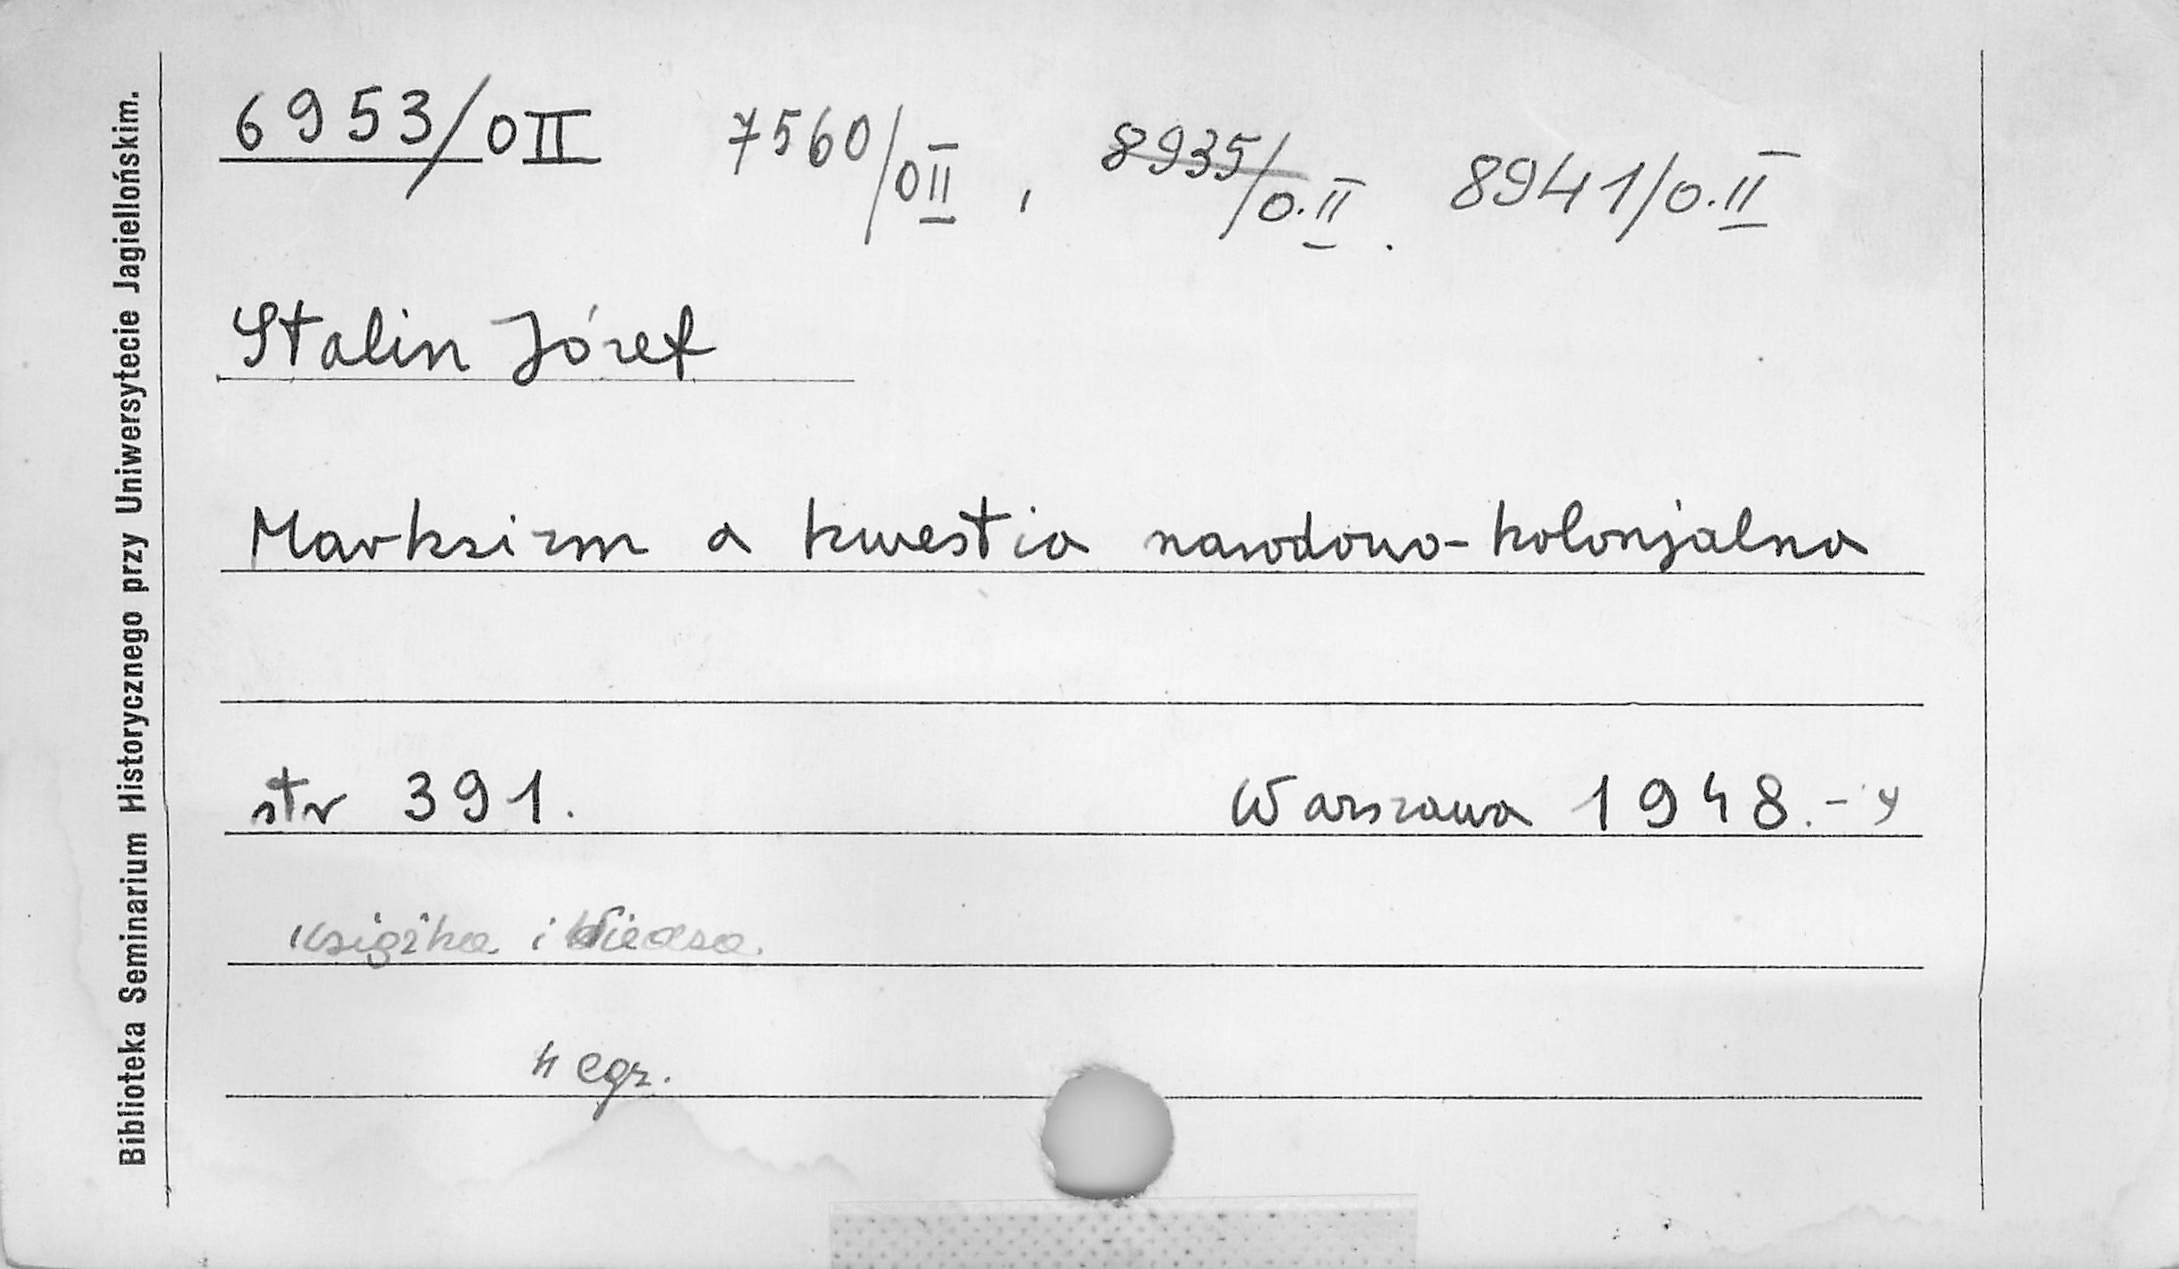 6953/OII 7560/OII, 8935/O.II. 8941/O.II
Stalin Józef
Marksizm a kwestia narodowo-kolonjalna
str 391. Warszawa 1948.-
Książka i Wiedza
4 egz.
Biblioteka Seminarium Historycznego przy Uniwersytecie Jagiellońskim.